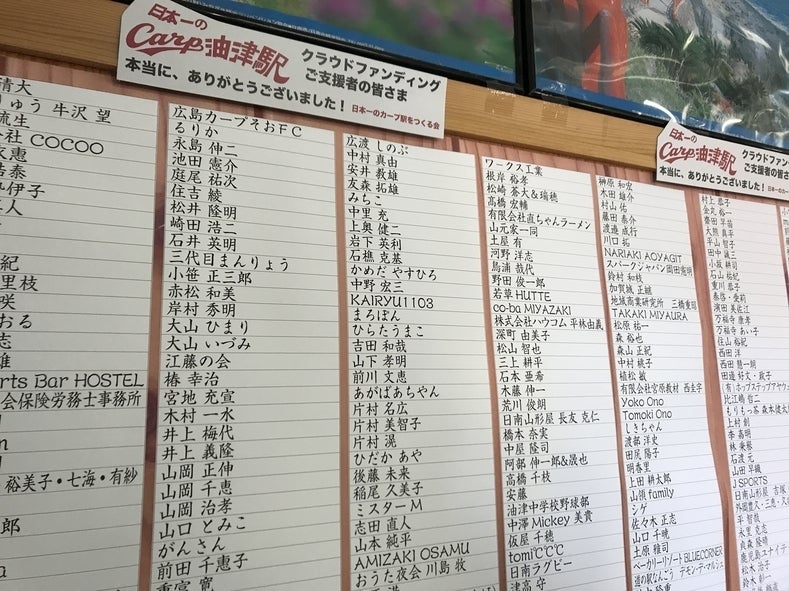 日本一の
Carp油津駅
クラウドファンディング
ご支援者の皆さま
本当に、ありがとうございました！
日本一のカープ駅をつくる会
日本一の
Carp油津駅
クラウドファン
ご支援者の皆さ
本当に、ありがとうございました！
日本一のカー
清大
りゅう 牛沢 望
流生
社 COCOO
恵
浩泰
伊子
紀
里枝
咲
おる
志
雄
rts Bar HOSTEL
会保険労務士事務所
裕美子・七海・有紗
郎
広島カープそおFC
るりか
永島 伸二
池田 憲介
庭尾 祐次
住吉 綾
松井 隆明
崎田 浩二
石井 英明
三代目まんりょう
小笹 正三郎
赤松 和美
岸村 秀明
大山 ひまり
大山 いづみ
江藤の会
椿 幸治
宮地 充宣
木村 一水
井上 梅代
井上 義隆
山岡 正伸
山岡 千恵
山岡 治孝
山口 とみこ
がんさん
前田 千恵子
重富 寛
広渡 しのぶ
中村 真由
安井 教雄
友森 拓雄
みちこ
中里 充
上奥 健二
岩下 英利
石樵 克基
かめだ やすひろ
中野 宏三
KAIRYU1103
まろぽん
ひらたうまこ
吉田 和哉
山下 孝明
前川 文恵
あがぱあちゃん
片村 名広
片村 美智子
片村 滉
ひだか あや
後藤 未来
稲尾 久美子
ミスターM
志田 直人
山本 純平
AMIZAKI OSAMU
おうた夜会 川島 牧
ワークス工業
根岸 裕孝
松崎 蒼大&瑞穂
高橋 宏輔
有限会社直ちゃんラーメン
山元家一同
土屋 有
河野 洋志
鳥浦 哉代
野田 俊一郎
若草HUTTE
co-ba MIYAZAKI
株式会社ハウコム 平林由義
深町 由美子
松山 智也
三上 耕平
石本 亜希
木藤 伸一
荒川 俊朗
日南山形屋 長友 克仁
橋本 奈実
中屋 隆司
阿部 伸一郎&晟也
高橋 千枝
安藤
油津中学校野球部
中澤 Mickey 美貴
仮屋 千穂
tomi℃℃℃
日南ラグビー
津高 守
榊原 和宏
木田 雄介
村山 佑
藤田 泰介
渡邉 成行
川口 拓
NARIAKI AOYAGIT
スパークジャパン岡田憲明
鈴村 和枝
加賀城 正雄
地域商業研究所 三橋重昭
TAKAKI MIYAURA
松原 祐一
森 裕也
森山 正紀
中村 桃子
植松 敏
有限会社宮原教材 西圭宇
Yoko Ono
Tomoki Ono
しきちゃん
渡部 洋史
田尻 陽子
明香里
上田 耕太郎
山領family
シゲ
佐々木 正志
山口 千晩
土原 雅司
ベーカリーリゾートBLUECORNER
道の駅なんごう デモン・デ・マルシェ
村上 恭子
金丸 裕一
齋田 早苗
大熊 真平
平山 智子
田中 誠三
小坂 耕司
石山 祐紀
重川 恭子
泰啓・愛莉
濱田 英佐江
万福寺 康孝
万福寺 あい子
住山 裕紀
西田 洋
西田 慧一朗
田道 好文・政子
(有)ホップステップアヤウェ
比江嶋 哲二
もりもっ茶 森本健太
上村 創
李 嘉明
林 秉蓁
石渡 元
山田 早織
J SPORTS
平 智哉
永里 克志
貞森 隆晴
鹿児島ユナイテ
松木 治子
鈴木 彰一